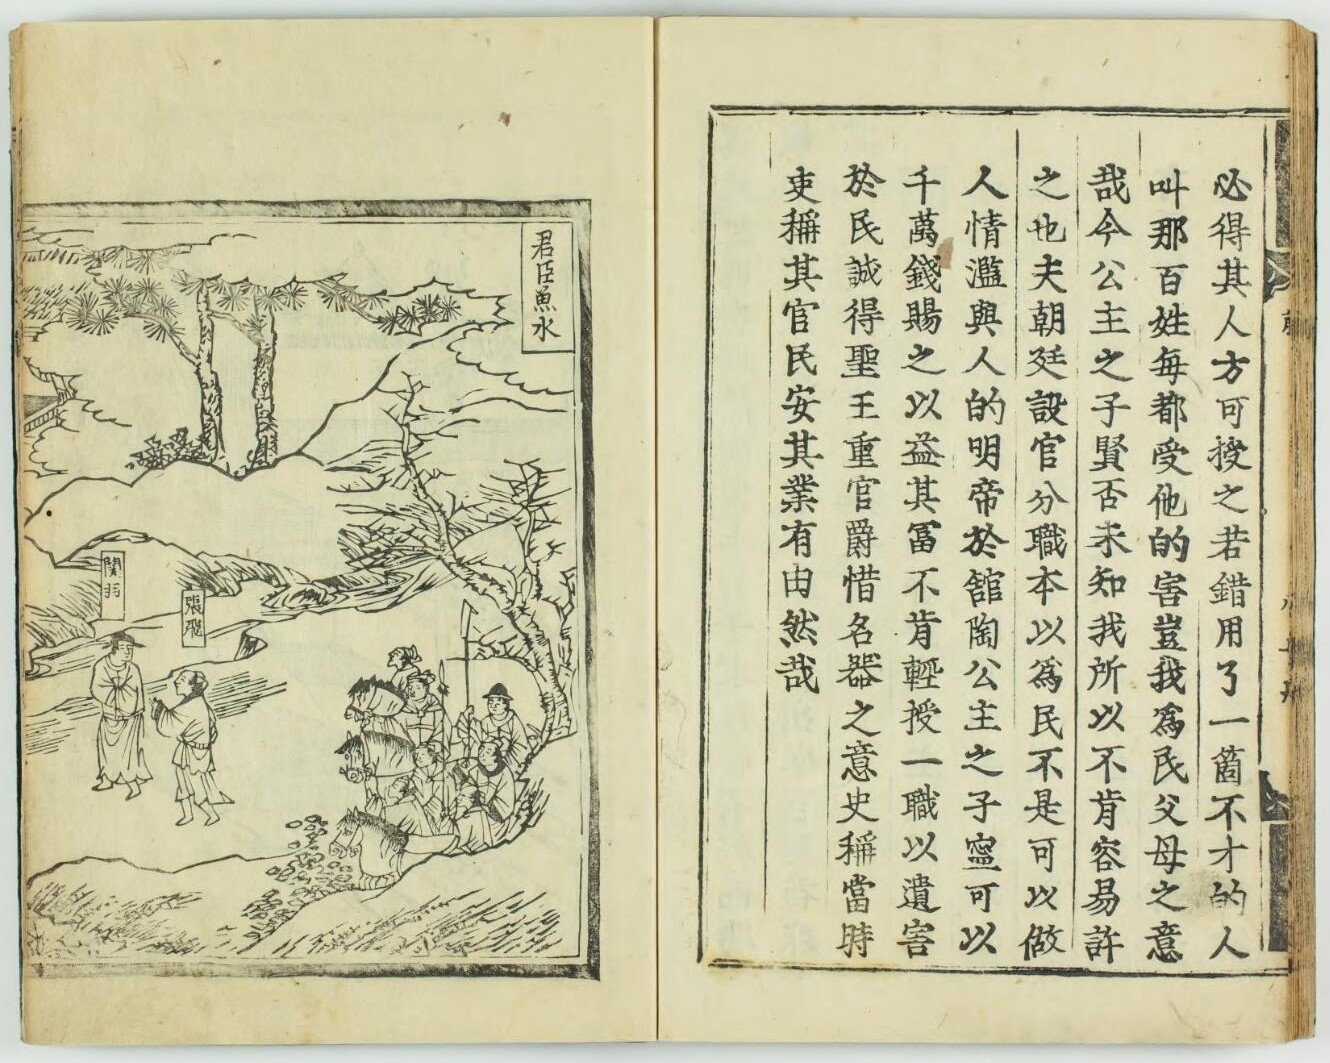 必得其人方可授之若錯用了一箇不才的人
叫那百姓每都受他的害豈我為民父母之意
哉今公主之子賢否未知我所以不肯容易許
之也夫朝廷設官分職本以為民不是可以做
人情濫與人的明帝於舘陶公主之子寧可以
千萬錢賜之以益其富不肯輕授一職以遺害
於民誠得聖王重官爵惜名器之意史稱當時
吏稱其官民安其業有由然哉
君臣魚水
張飛
関羽